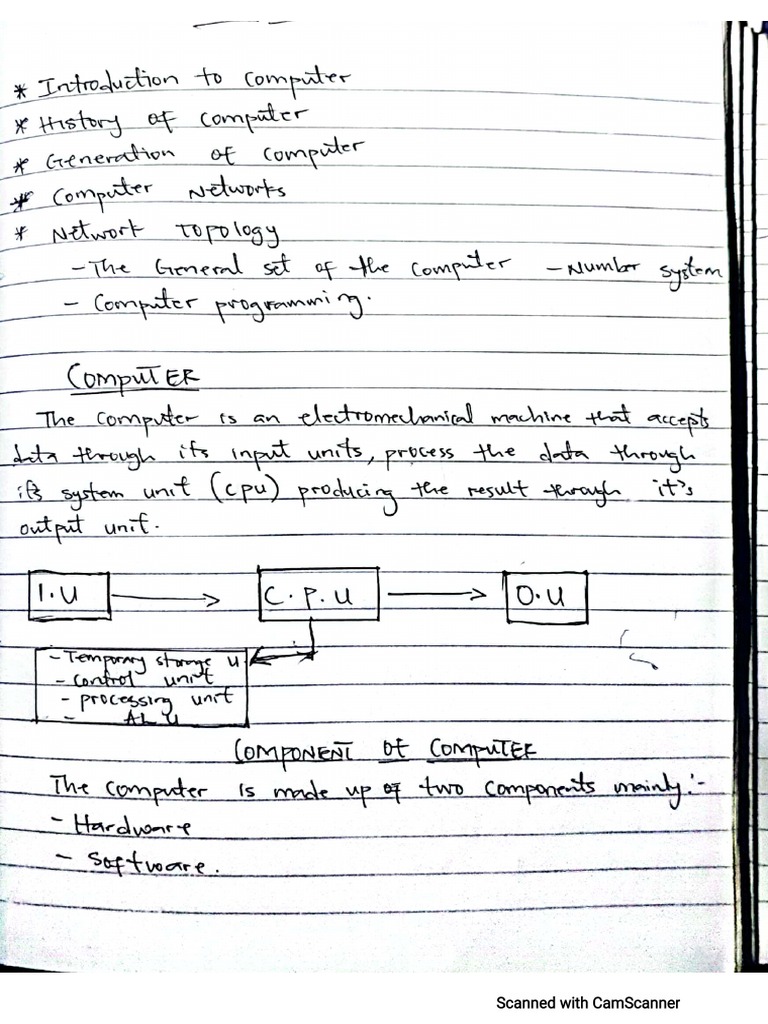 * Introduction to computer
* History of computer
* Generation of computer
* Computer Networks
* Network Topology
- The General set of the computer - Number system
- Computer programming.
COMPUTER
The computer is an electromechanical machine that accepts
data through its input units, process the data through
its system unit (cpu) producing the result through it's
output unit.
I.U
C.P.U
O.U
- Temporary storage U
- control unit
- processing unit
- ALU
COMPONENT OF COMPUTER
The computer is made up of two components mainly:-
- Hardware
- Software.
Scanned with CamScanner